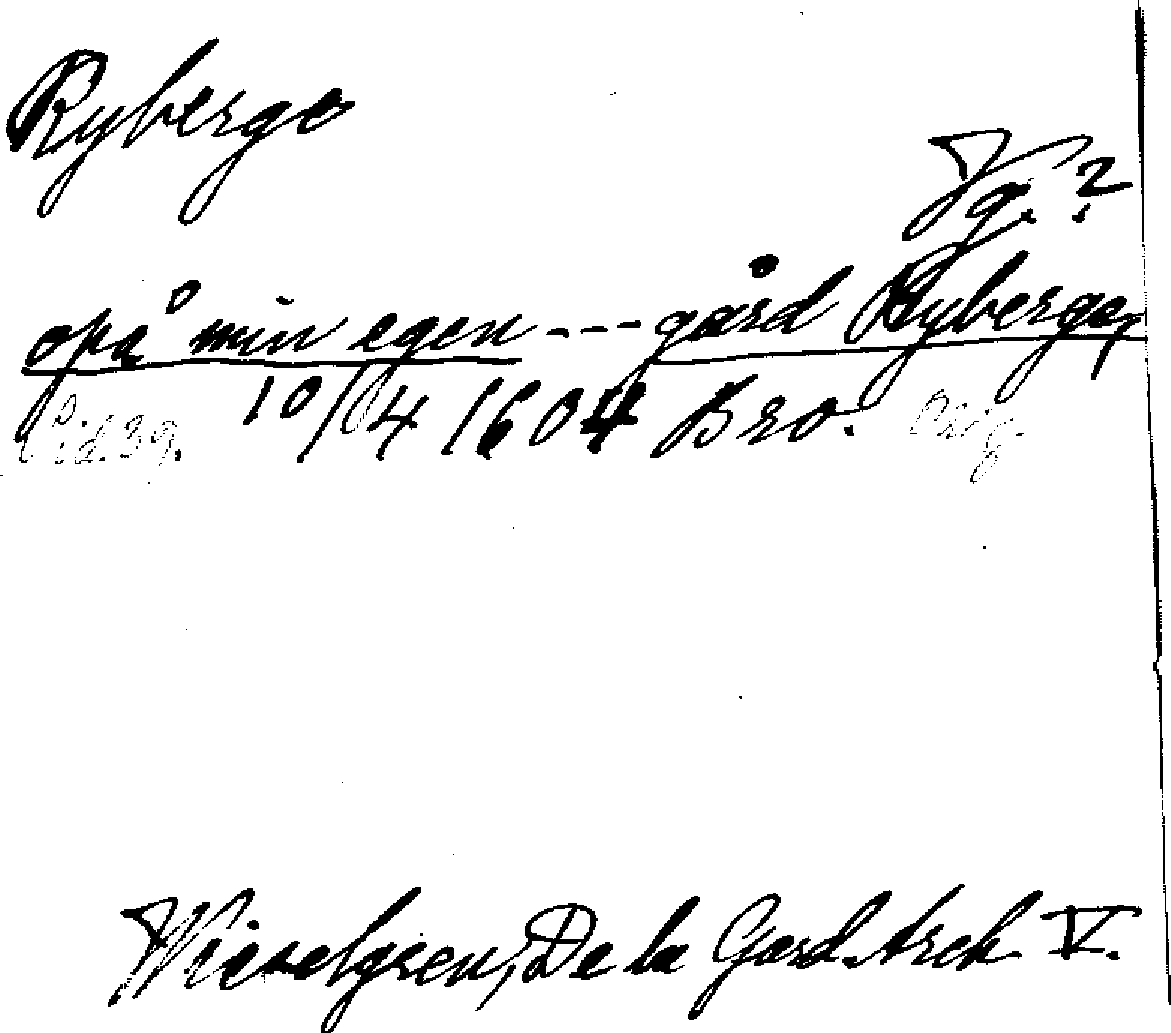 Ryberge
Vg. ?
opå min egen --- gård Ryberge,
Sid. 39. 10/4 1604 Bro. Orig.
Wieselgren, De la Gard. Arch. V.